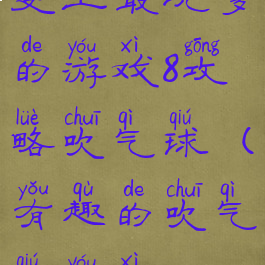 de yóu xì gōng
的游戏8攻
lüè chuī qì qiú
略吹气球（
yǒu qù de chuī qì
有趣的吹气
qiú yóu xì